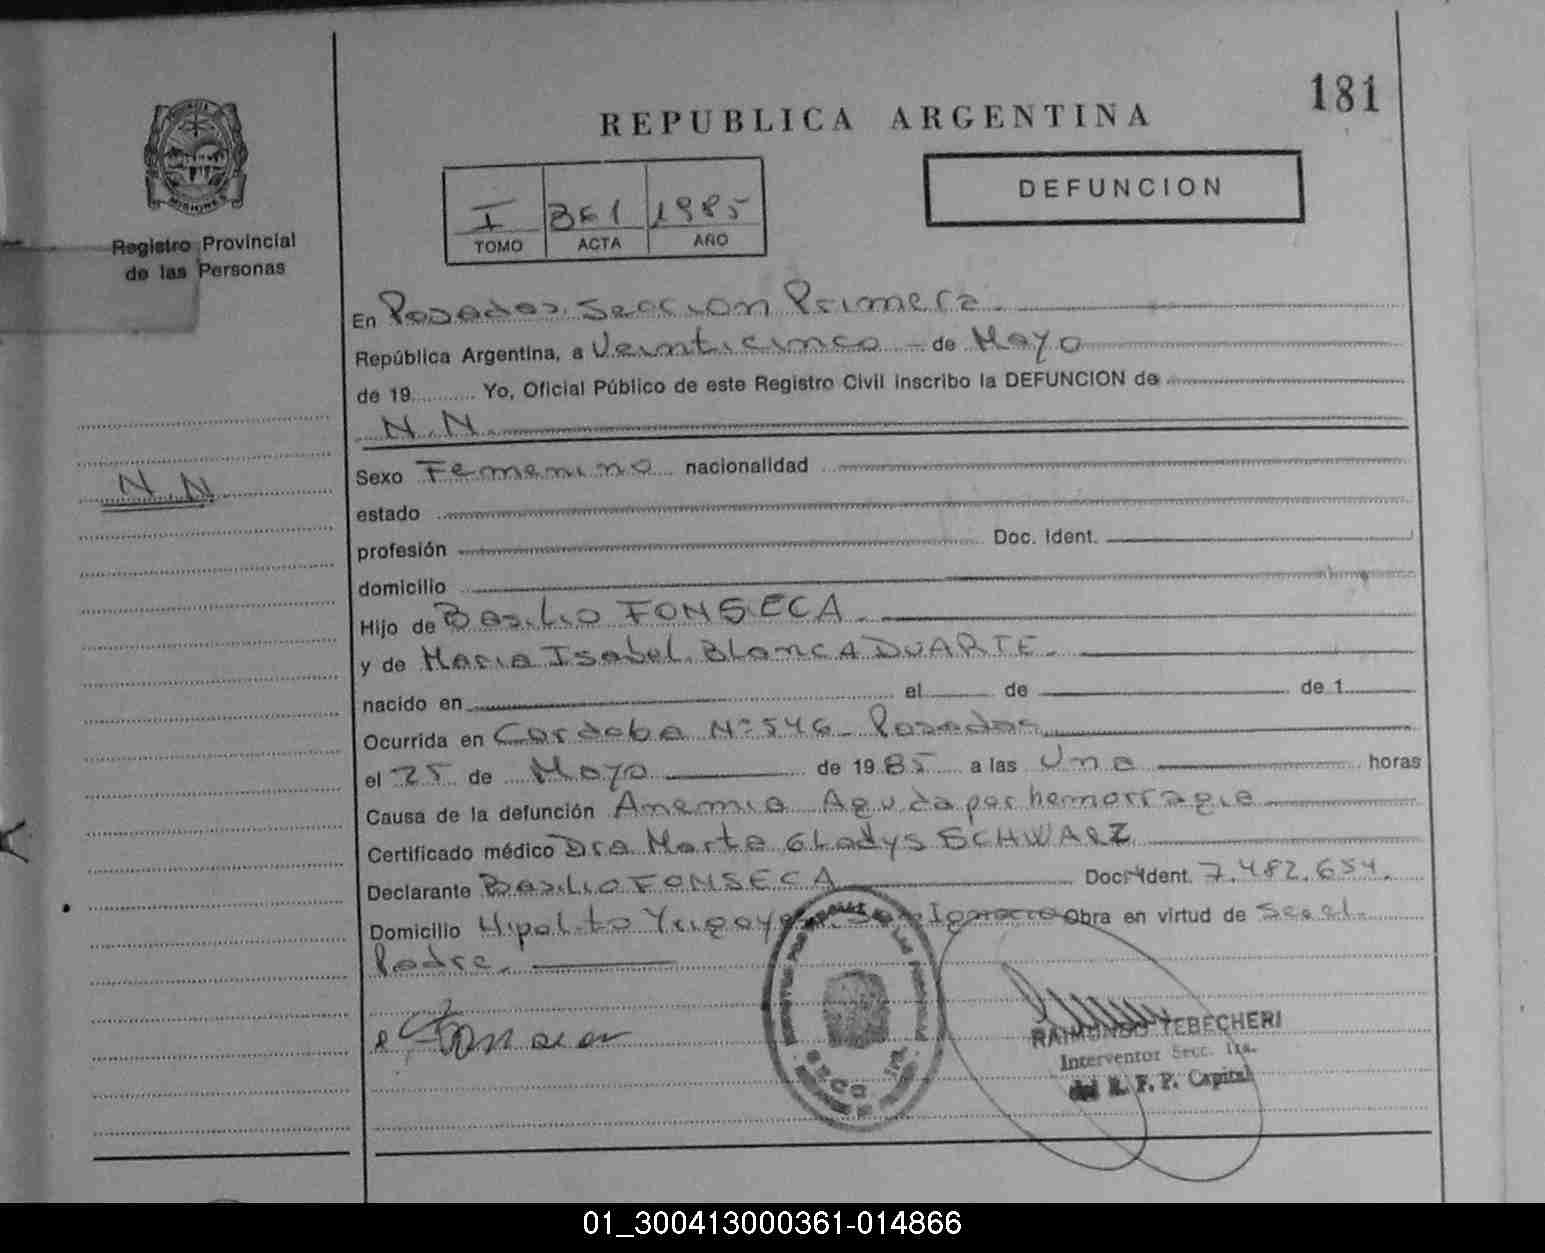 181
REPUBLICA ARGENTINA
DEFUNCION
I 361 1985
TOMO ACTA AÑO
PROVINCIA
MISIONES
Registro Provincial
de las Personas
N.N
En Posadas. Seccion Primera
República Argentina, a Veinticinco de Mayo
de 19 Yo, Oficial Público de este Registro Civil inscribo la DEFUNCION de
N.N.
Sexo Femenino nacionalidad
estado
profesión Doc. Ident.
domicilio
Hijo de Basilio FONSECA
y de Maria Isabel Blanca DUARTE.
nacido en el de de 1
Ocurrida en Cordoba Nº 546 - Posadas
el 25 de Mayo de 1985 a las Una horas
Causa de la defunción Anemia Aguda por hemorragia
Certificado médico Dra Marta GLadys SCHWARZ
Declarante Basilio FONSECA Doc. Ident. 7.482.654.
Domicilio Hipolito Yrigoyen San Ignacio Obra en virtud de Ser el
Padre.
RAIMUNDO TEBECHERI
Interventor Secc. 1ra.
del R. P. P. Capital
01_300413000361-014866